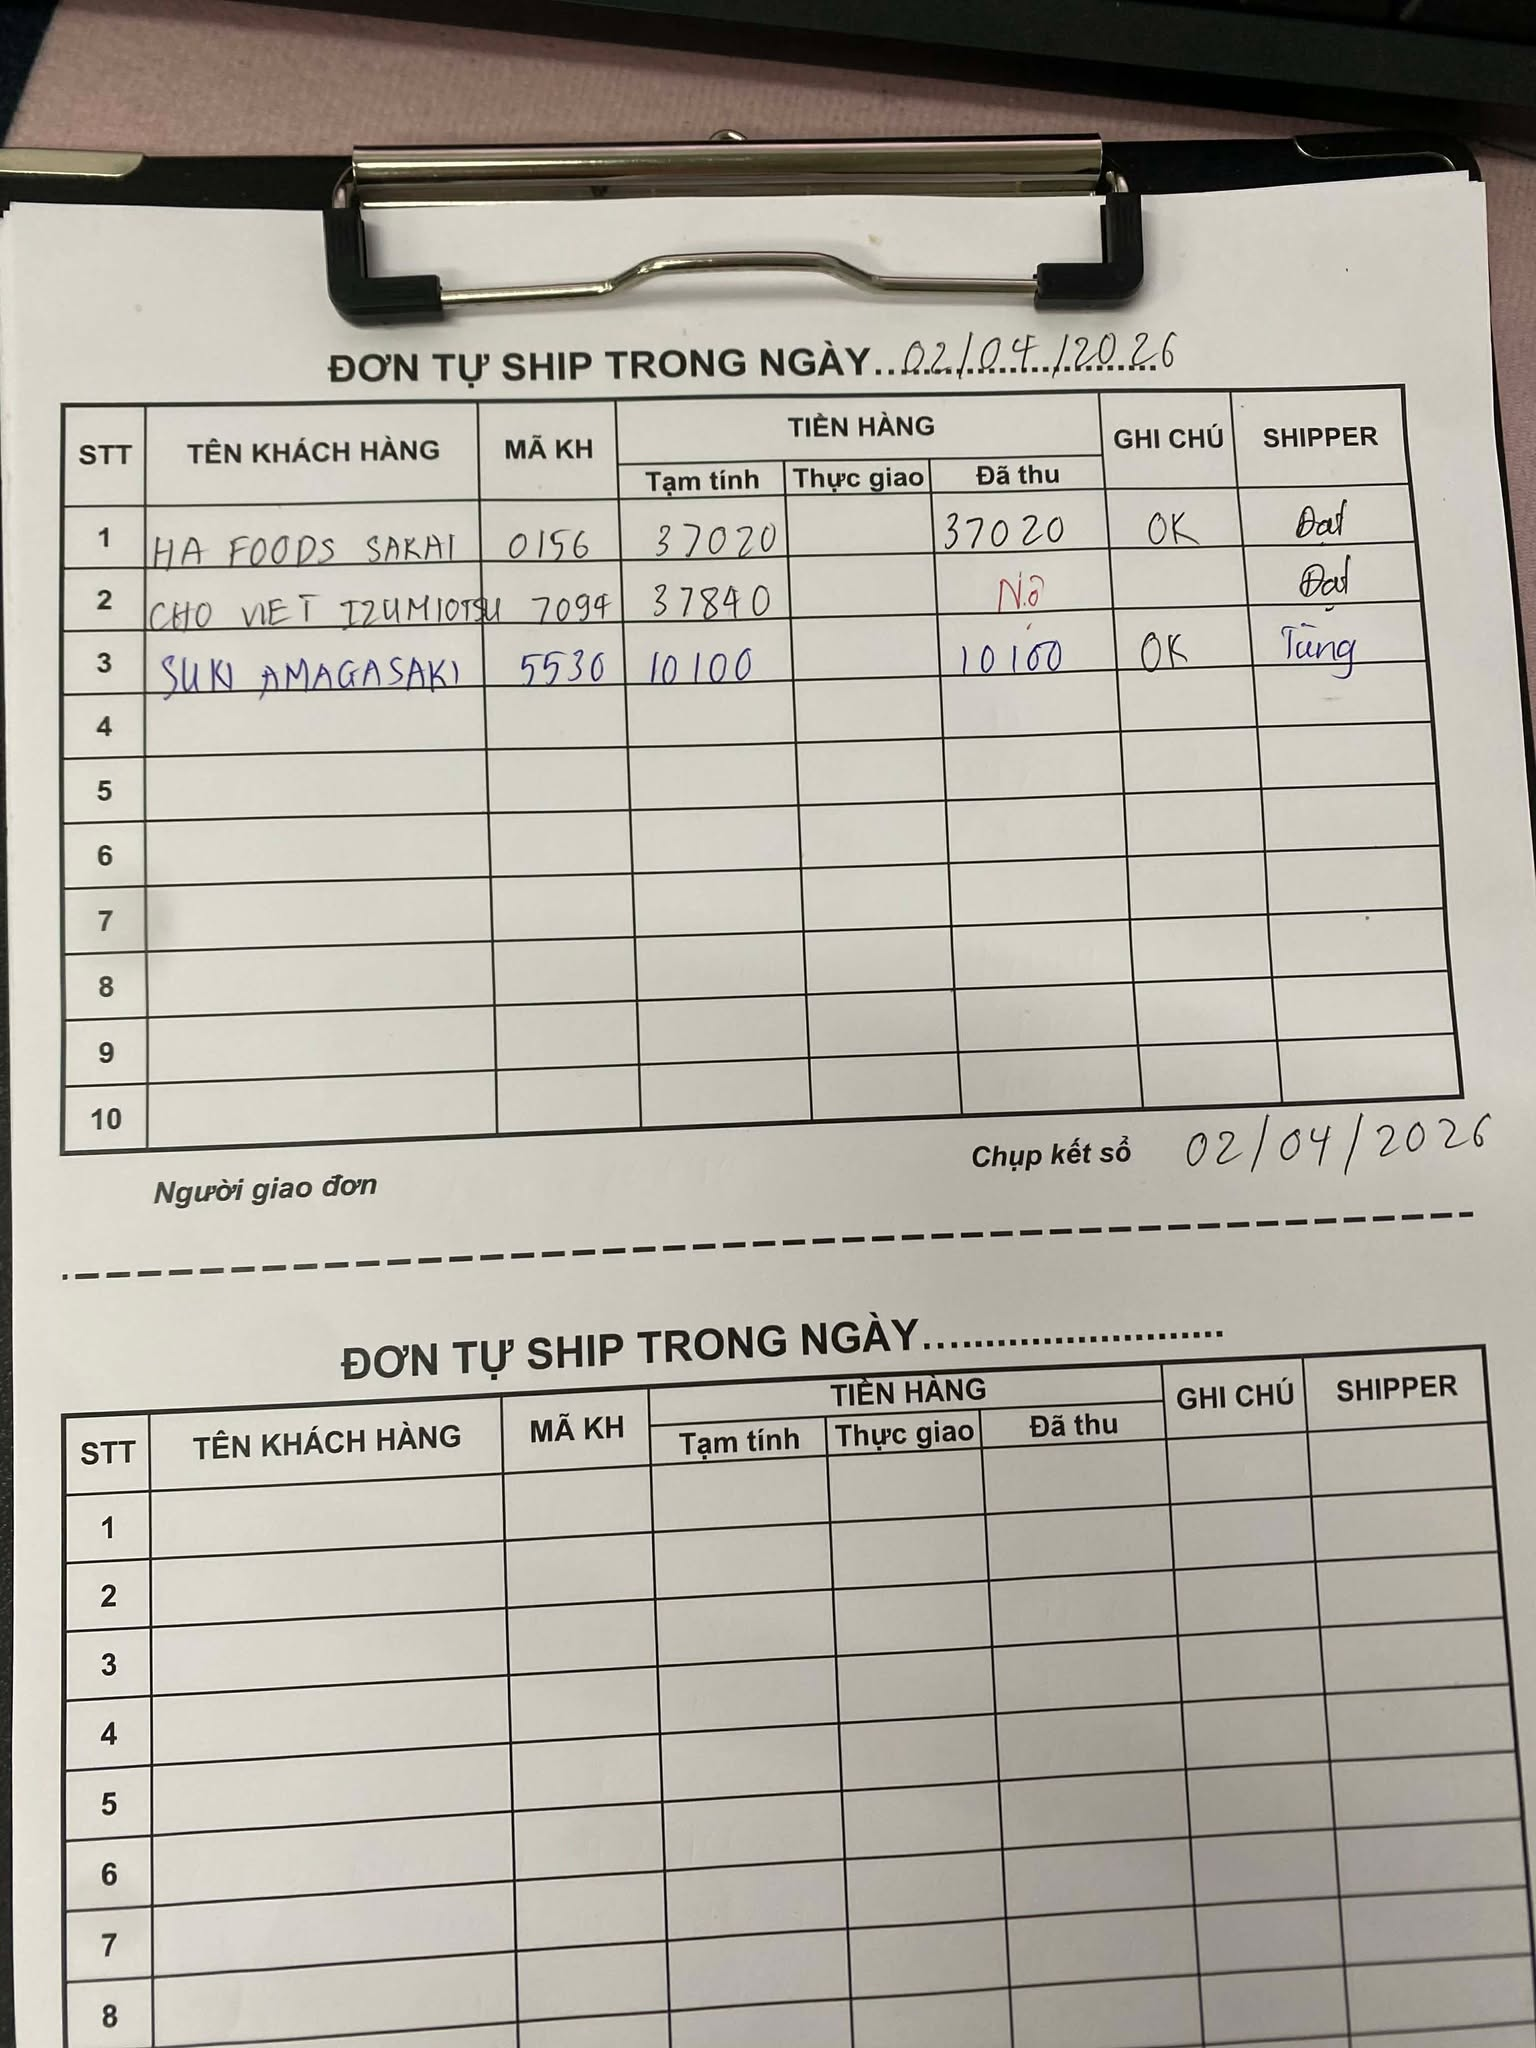 ĐƠN TỰ SHIP TRONG NGÀY...02/04/2026
STT TÊN KHÁCH HÀNG MÃ KH TIỀN HÀNG GHI CHÚ SHIPPER
Tạm tính Thực giao Đã thu
1 HA FOODS SAKAI 0156 37020 37020 OK Đạt
2 CHO VIET IZUMIOTSU 7094 37840 Nợ Đạt
3 SUKI AMAGASAKI 5530 10100 10100 OK Tùng
4
5
6
7
8
9
10
Người giao đơn Chụp kết sổ 02/04/2026
ĐƠN TỰ SHIP TRONG NGÀY...........................
STT TÊN KHÁCH HÀNG MÃ KH TIỀN HÀNG GHI CHÚ SHIPPER
Tạm tính Thực giao Đã thu
1
2
3
4
5
6
7
8